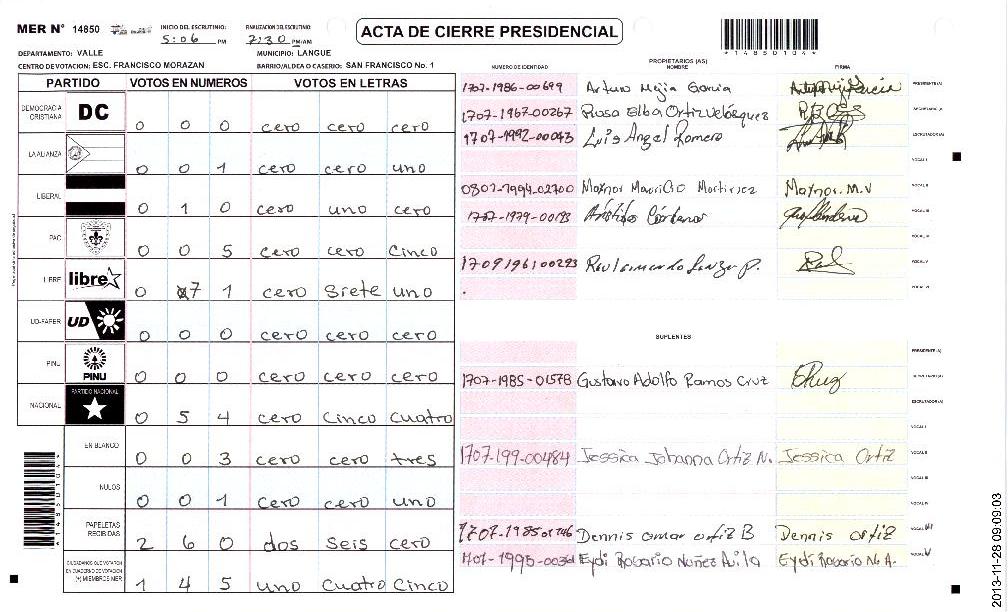 MER N° 14850 INICIO DEL ESCRUTINIO: 5:06 PM FINALIZACION DEL ESCRUTINIO: 7:30 PM/AM
ACTA DE CIERRE PRESIDENCIAL
*14850104*
DEPARTAMENTO: VALLE MUNICIPIO: LANGUE
CENTRO DE VOTACION: ESC. FRANCISCO MORAZAN BARRIO/ALDEA O CASERIO: SAN FRANCISCO No. 1
PARTIDO VOTOS EN NUMEROS VOTOS EN LETRAS
DEMOCRACIA CRISTIANA DC 0 0 0 cero cero cero
LA ALIANZA 0 0 1 cero cero uno
LIBERAL 0 1 0 cero uno cero
PAC 0 0 5 cero cero Cinco
LIBRE libre 0 7 1 cero Siete uno
UD-FAPER UD 0 0 0 cero cero cero
PINU PINU 0 0 0 cero cero cero
NACIONAL PARTIDO NACIONAL 0 5 4 cero Cinco Cuatro
EN BLANCO 0 0 3 cero cero tres
NULOS 0 0 1 cero cero uno
PAPELETAS RECIBIDAS 2 6 0 dos Seis cero
CIUDADANOS QUE VOTARON EN CUADERNO DE VOTACION (+) MIEMBROS MER 1 4 5 uno Cuatro Cinco
*14850104*
PROPIETARIOS (AS)
NUMERO DE IDENTIDAD NOMBRE FIRMA
1707-1986-00699 Arturo Mejia Garcia PRESIDENTE(A)
1707-1967-00267 Rosa Elba Ortiz Velasquez SECRETARIO(A)
1707-1992-00043 Luis Angel Romero ESCRUTADOR(A)
VOCAL I
0807-1994-02700 Maynor Mauricio Martinez Maynor. M.V VOCAL II
1707-1979-00183 VOCAL III
VOCAL IV
1709196100293 VOCAL V
VOCAL VI
SUPLENTES
PRESIDENTE(A)
1707-1985-01578 Gustavo Adolfo Ramos Cruz SECRETARIO(A)
ESCRUTADOR(A)
VOCAL I
1707-199-00484 Jessica Johanna Ortiz N. Jessica Ortiz VOCAL II
VOCAL III
VOCAL IV
1707-1985-01746 Dennis omar ortiz B Dennis ortiz VOCAL
Eydi Rosario Nuñez Avila Eydi Rosario N. A. VOCAL V
2013-11-28 09:09:03